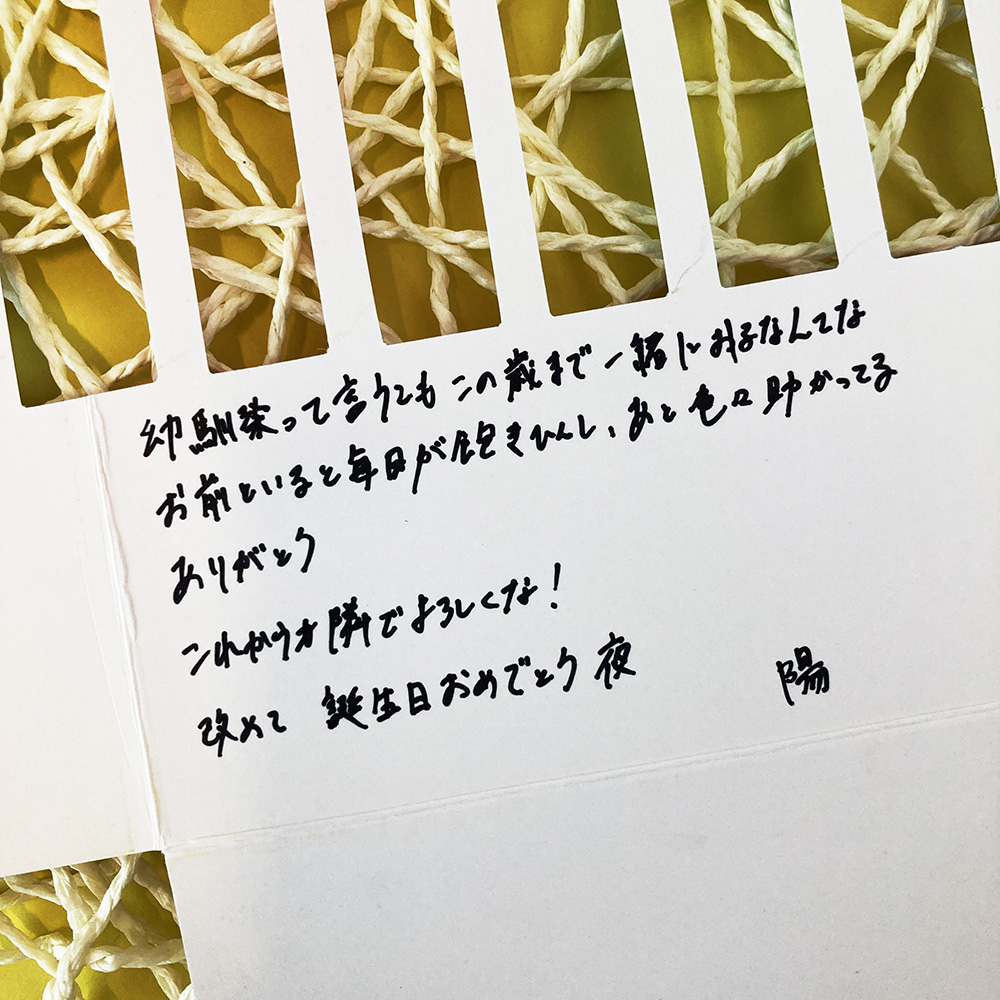 幼馴染って言うてもこの歳まで一緒におるなんてな
お前といると毎日が飽きひんし、あと色々助かってる
ありがとう
これからも隣でよろしくな!
改めて 誕生日おめでとう 夜
陽